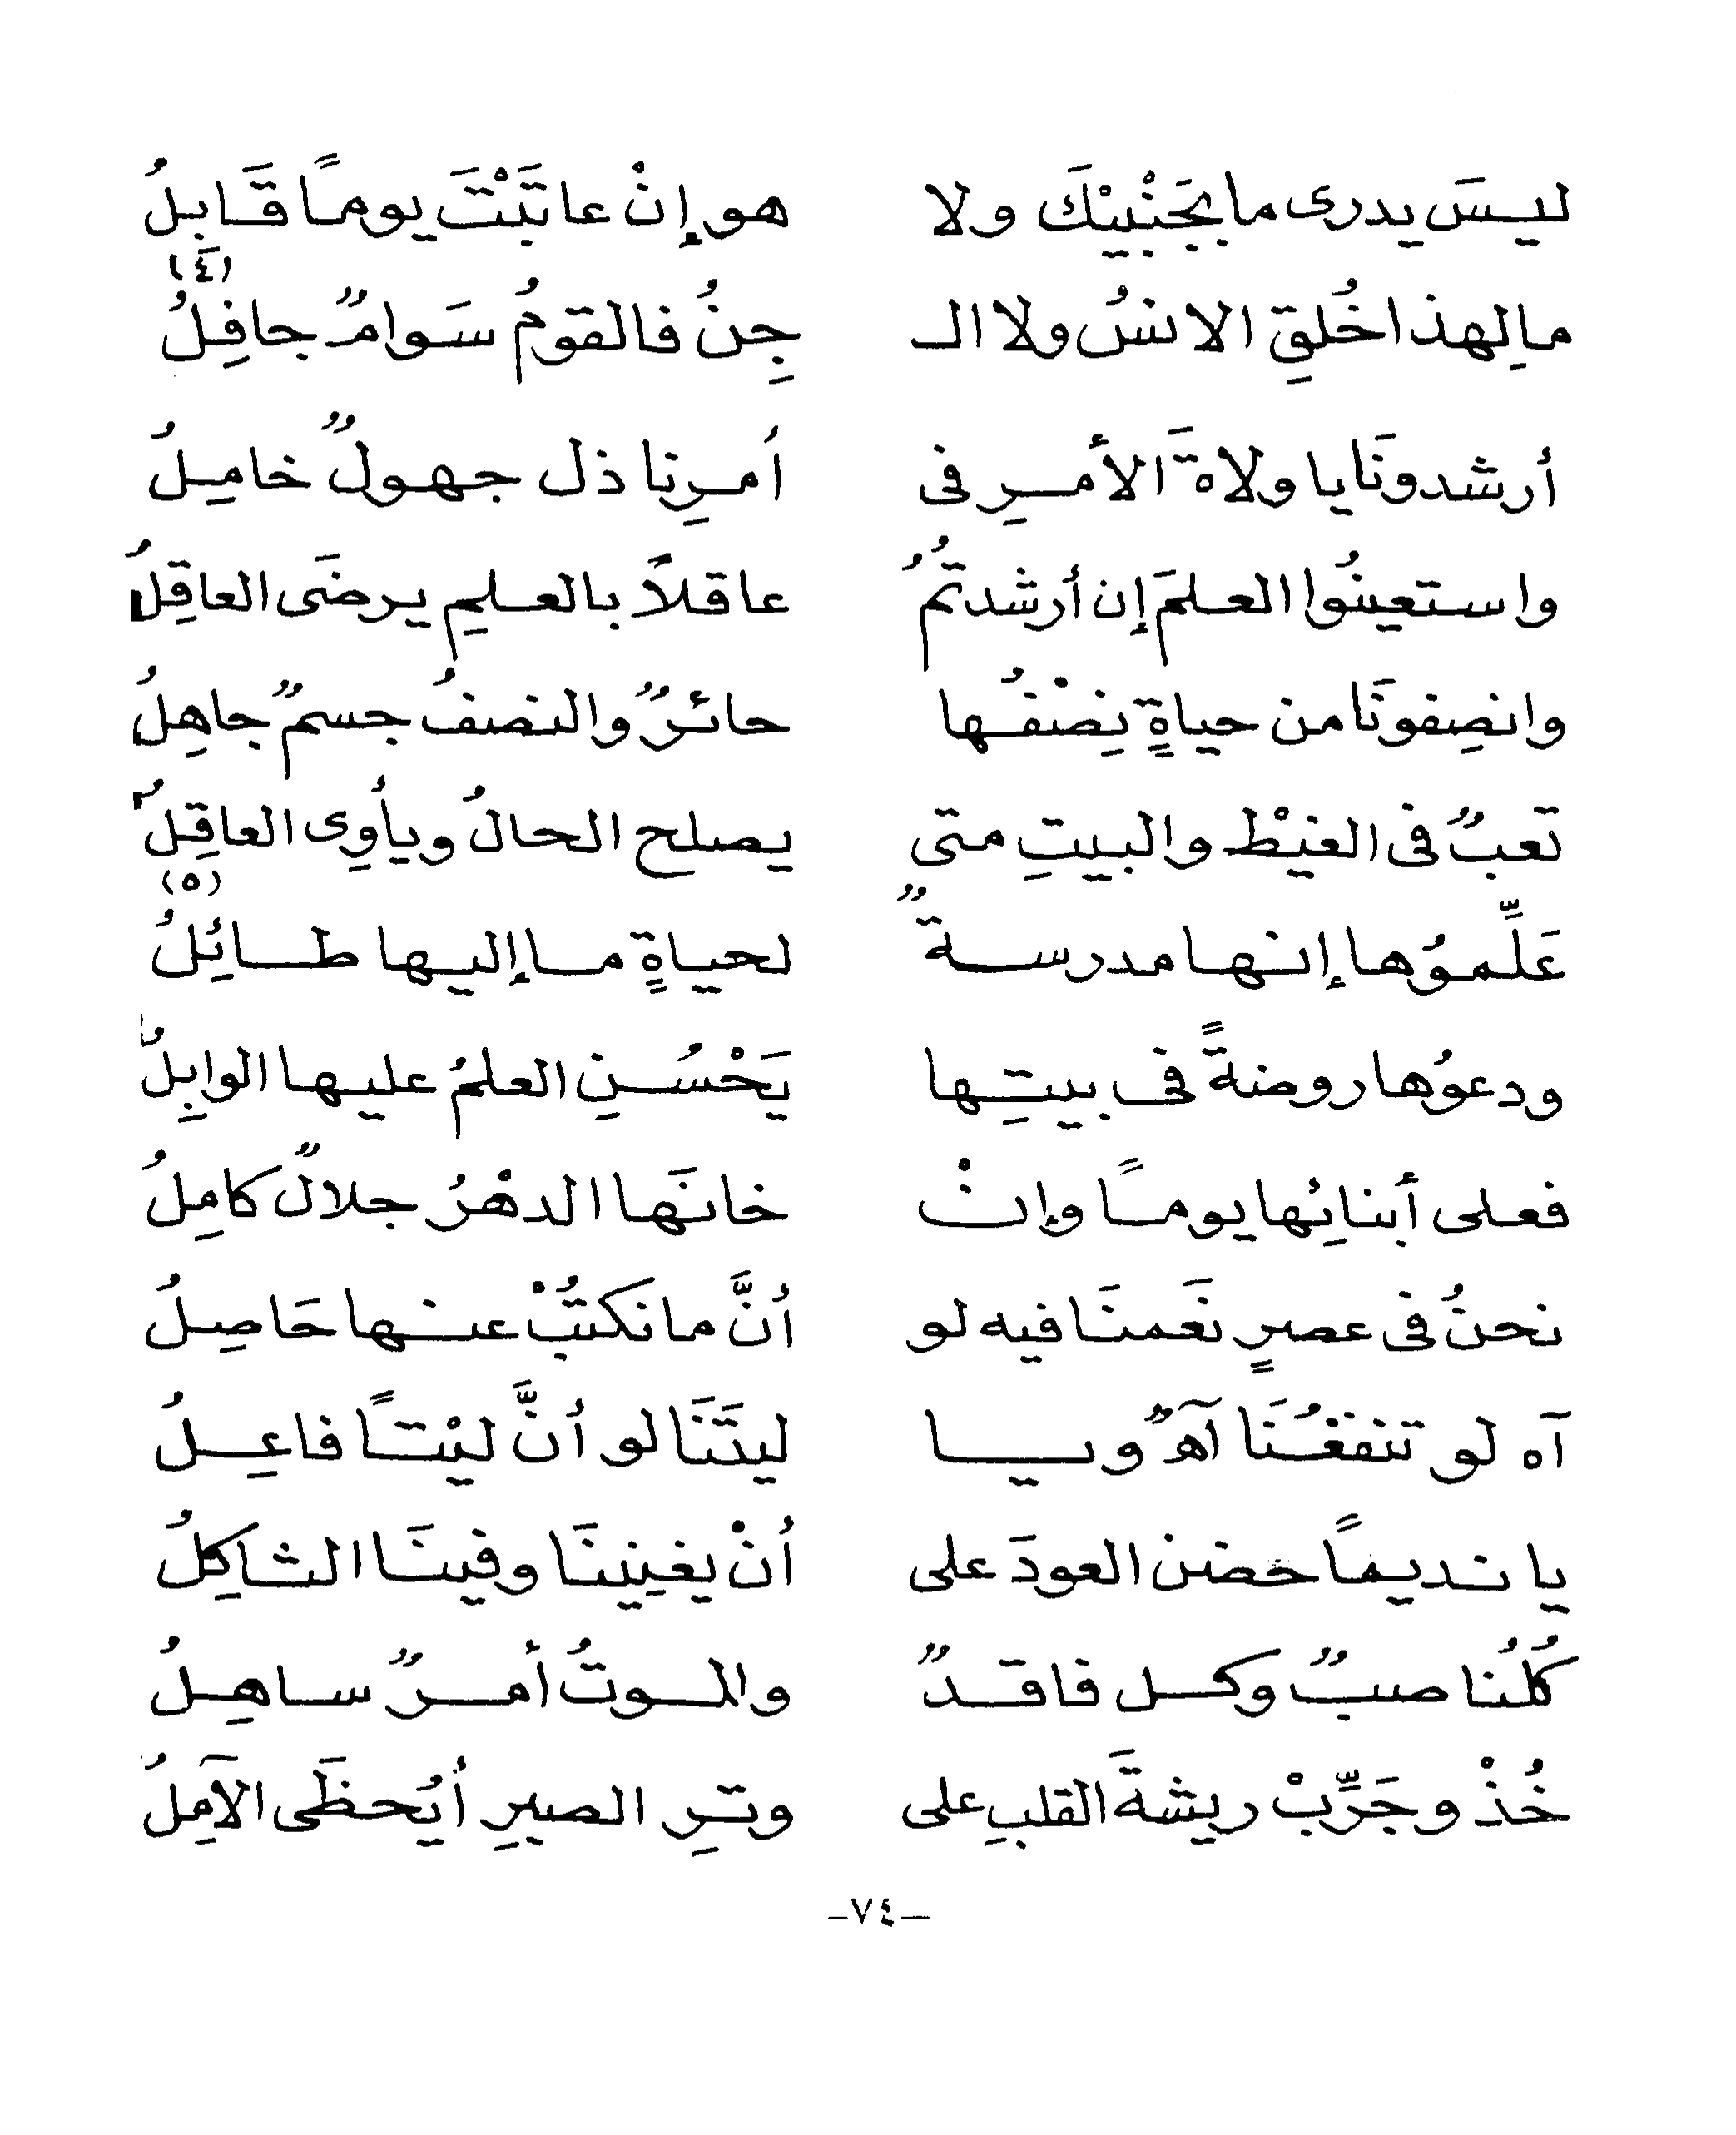 ليسَ يدرى ما بجَنْبيْكَ ولا هو إنْ عاتبْتَ يوماً قَابلُ
(٤)
مالِهذا خُلقِ الانسُ ولا الـ جِنُ فالقومُ سَوامٌ جافِلُ
أرشدونَا يا ولاةَ الأمرِ فى أمرِنا ذل جهولٌ خامِلُ
واستعينُوا العلمَ إن أرشدتمُ عاقلاً بالعلمِ يرضَى العاقِلُ
وانصِفونَا من حياةٍ نِصْفُها حائرٌ والنصفُ جسمٌ جاهِلُ
تعبٌ فى الغيْط والبيتِ متى يصلح الحالُ ويأوِى العاقِلُ
(٥)
عَلِّموُها إنها مدرسةٌ لحياةٍ ما إليها طائِلُ
ودعوُها روضةً فى بيتِها يَحْسُنِ العلمُ عليها الوابِلُ
فعلى أبنائِها يوماً وإنْ خانَها الدهْرُ جلالٌ كامِلُ
نحنُ فى عصرٍ نَعَمنَا فيه لو أنَّ ما نكتبُْ عنها حَاصِلُ
آه لو تنفعُنَا آهٌ ويا ليتَنَا لو أنَّ ليْتاً فاعِلُ
يا نديماً حضن العودَ على أنْ يغنِينَا وفينَا الشاكِلُ
كُلُنا صبٌ وكل فاقدٌ والموتُ أمرٌ ساهِلُ
خُذْ وجَرِّبْ ريشةَ القلبِ على وترِ الصبرِ أيُحظَى الآمِلُ
–٧٤–